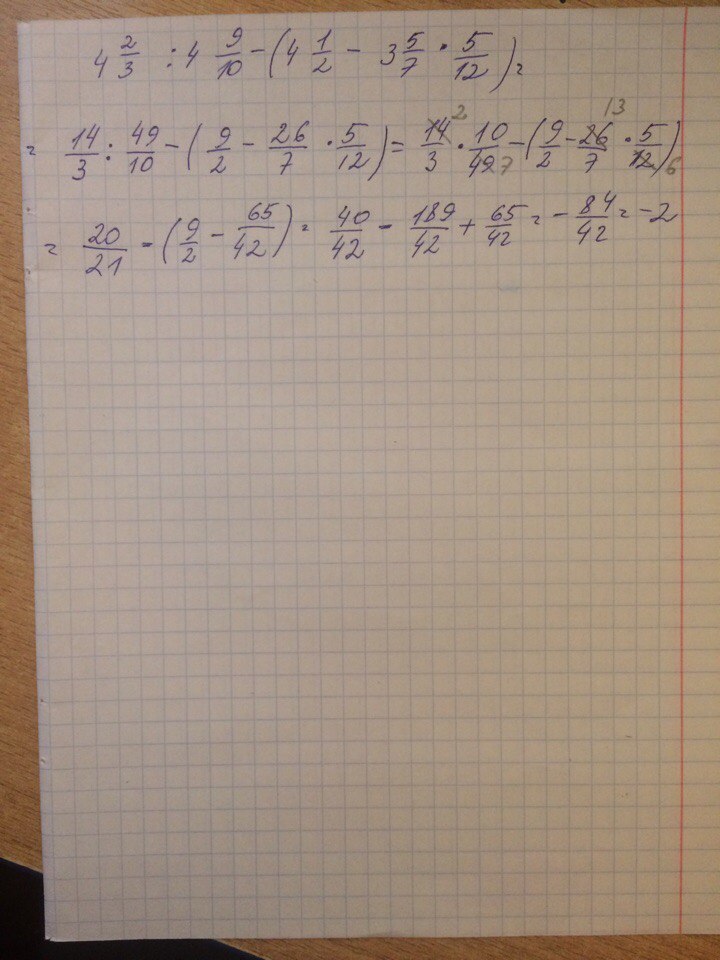 4 2/3 : 4 9/10 - (4 1/2 - 3 5/7 · 5/12) =
= 14/3 : 49/10 - (9/2 - 26/7 · 5/12) = 14 2/3 · 10/49 7 - (9/2 - 26 13/7 · 5/12 6)
= 20/21 - (9/2 - 65/42) = 40/42 - 189/42 + 65/42 = - 84/42 = -2